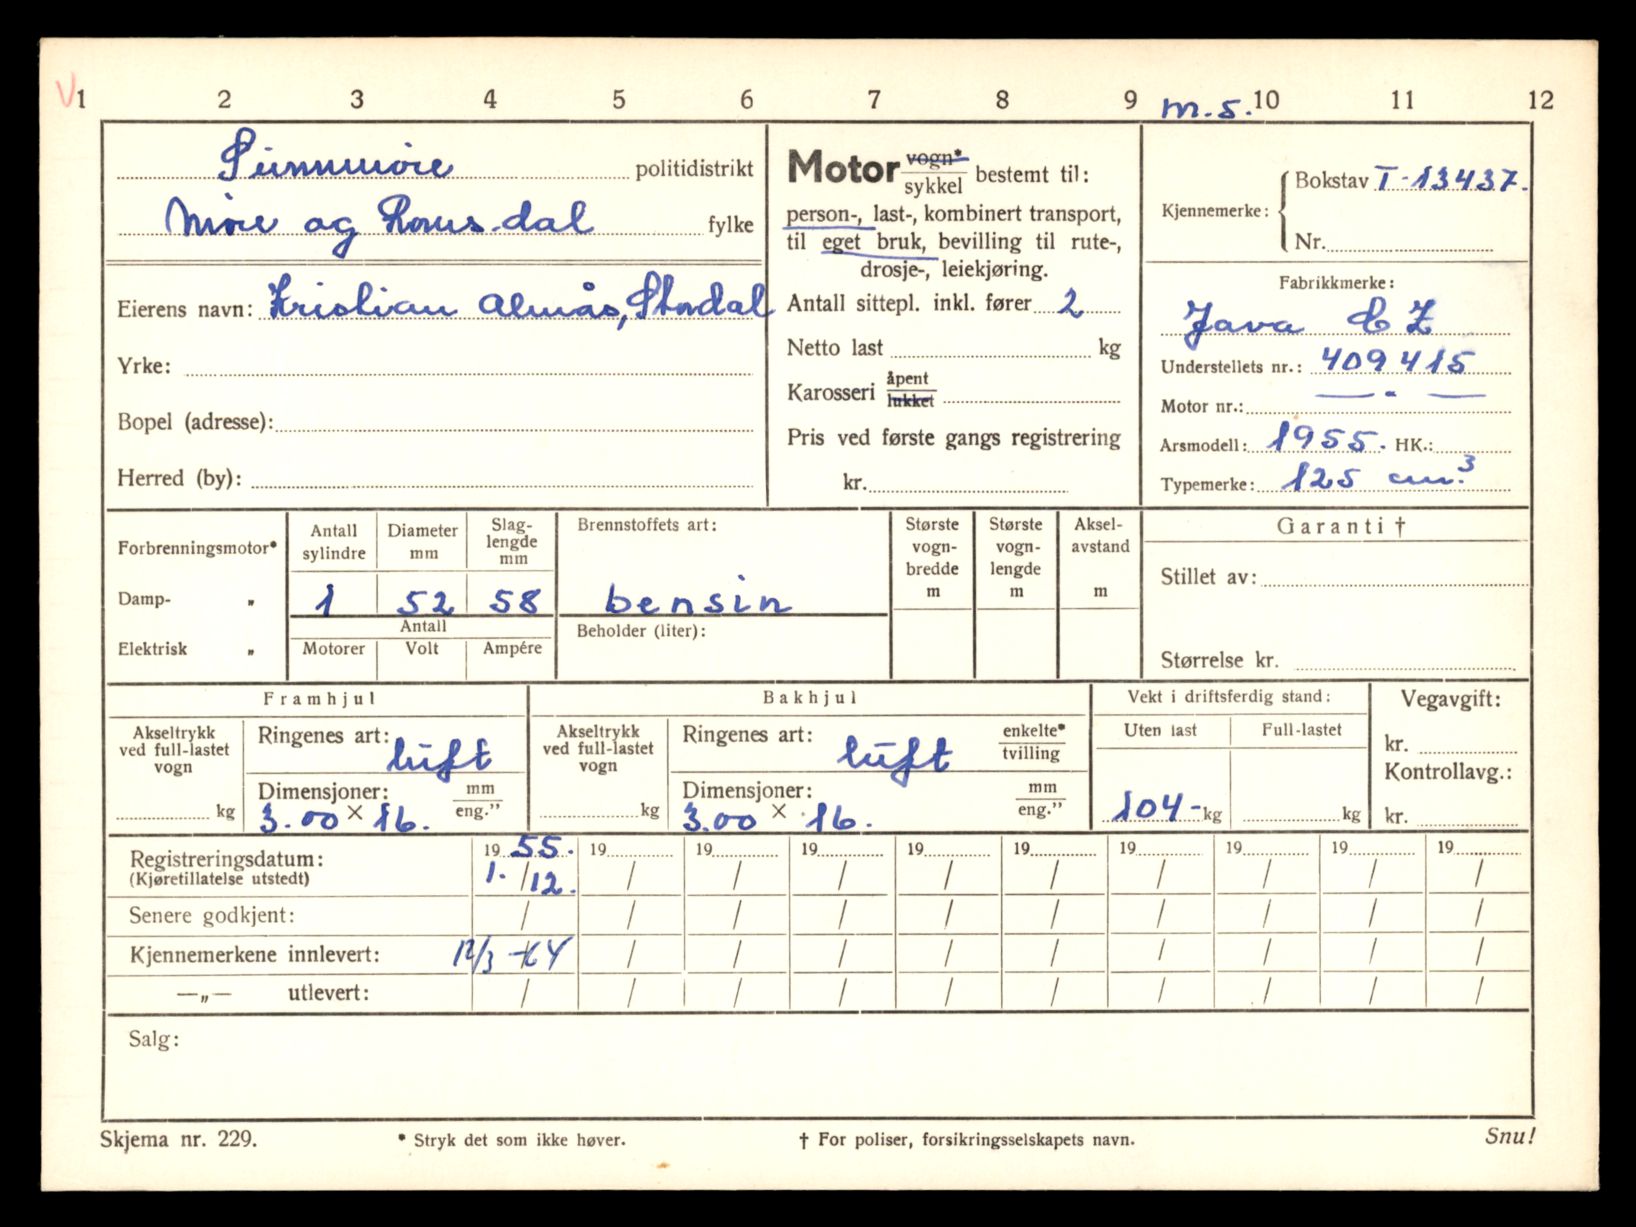 V
1 2 3 4 5 6 7 8 9 10 11 12
m.s.
Sunnmøre politidistrikt
Møre og Romsdal fylke
Eierens navn: Kristian Almås, Stordal
Yrke:
Bopel (adresse):
Herred (by):
Motor vogn* / sykkel bestemt til:
person-, last-, kombinert transport,
til eget bruk, bevilling til rute-,
drosje-, leiekjøring.
Antall sittepl. inkl. fører 2
Netto last kg
Karosseri åpent / lukket
Pris ved første gangs registrering
kr.
Kjennemerke: Bokstav T-13437.
Nr.
Fabrikkmerke:
Java CZ
Understellets nr.: 409415
Motor nr.: — " —
Arsmodell: 1955. HK.:
Typemerke: 125 cm.³
Forbrenningsmotor*
Damp- „
Elektrisk „
Antall sylindre
Diameter mm
Slag-
lengde
mm
1 52 58
Antall
Motorer Volt Ampére
Brennstoffets art:
bensin
Beholder (liter):
Største
vogn-
bredde
m
Største
vogn-
lengde
m
Aksel-
avstand
m
Garanti †
Stillet av:
Størrelse kr.
Framhjul
Akseltrykk
ved full-lastet
vogn
kg
Ringenes art: luft
Dimensjoner: mm / eng."
3.00 × 16.
Bakhjul
Akseltrykk
ved full-lastet
vogn
kg
Ringenes art: luft enkelte* / tvilling
Dimensjoner: mm / eng."
3.00 × 16.
Vekt i driftsferdig stand:
Uten last Full-lastet
104- kg kg
Vegavgift:
kr.
Kontrollavg.:
kr.
Registreringsdatum: 19 55. 19 19 19 19 19 19 19 19 19
(Kjøretillatelse utstedt) 1. / 12. / / / / / / / / /
Senere godkjent: / / / / / / / / / /
Kjennemerkene innlevert: 12/3 -64 / / / / / / / / /
—„— utlevert: / / / / / / / / / /
Salg:
Skjema nr. 229. * Stryk det som ikke høver. † For poliser, forsikringsselskapets navn. Snu!